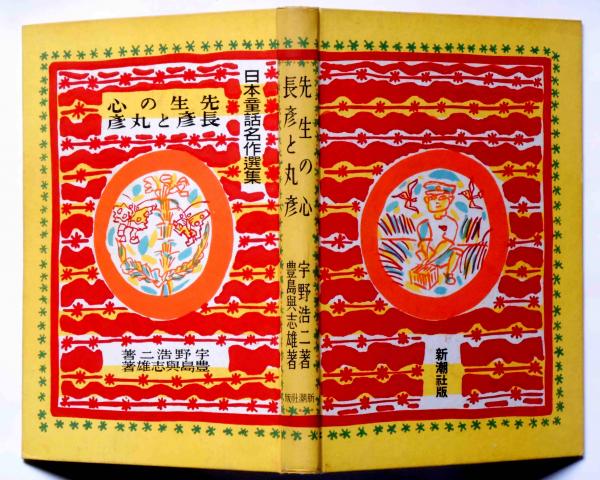 日本童話名作選集
先生の心
長彦と丸彦
宇野浩二著
豊島與志雄著
先生の心
長彦と丸彦
宇野浩二著
豊島與志雄著
新潮社版
新潮社版